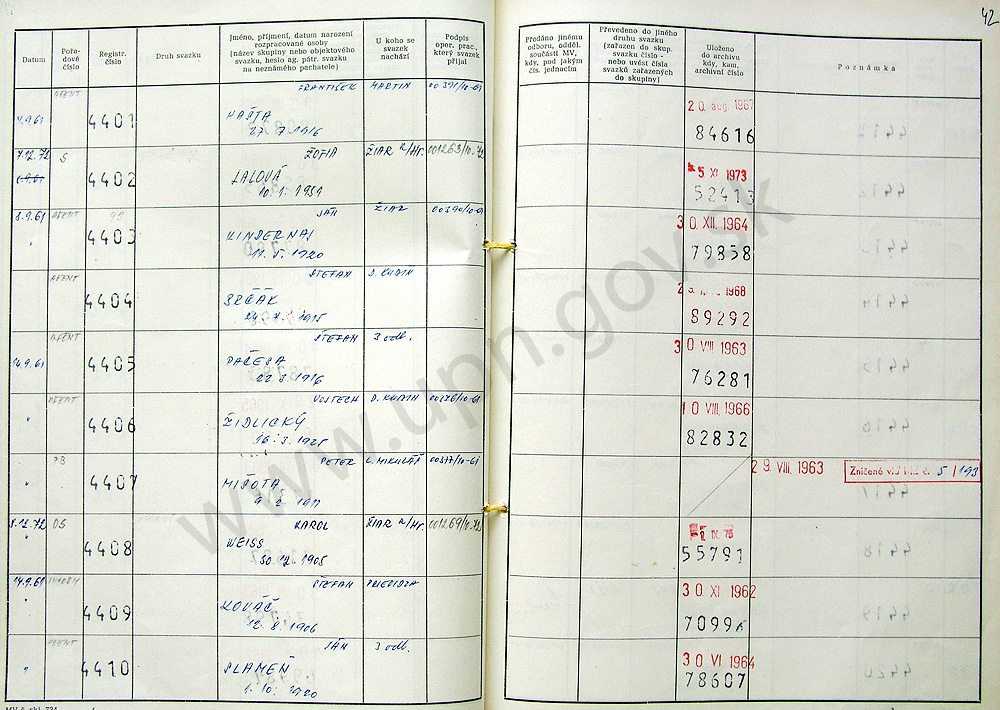 42
Datum
Pořadové číslo
Registr. číslo
Druh svazku
Jméno, příjmení, datum narození rozpracované osoby (název skupiny nebo objektového svazku, heslo ag. pátr. svazku na neznámého pachatele)
U koho se svazek nachází
Podpis oper. prac., který svazek přijal
Předáno jinému odboru, odděl. součásti MV, kdy, pod jakým čís. jednacím
Převedeno do jiného druhu svazku (zařazen do skup. svazku číslo - nebo uvést čísla svazků zařazených do skupiny)
Uloženo do archivu kdy, kam, archivní číslo
Poznámka
AGENT FRANTIŠEK MARTIN 00391/10-61 20. aug 1967
4.9.61 4401 HAŠTA 84616
27. 7. 1916
7.12.72 S ŽOFIA ŽIAR n/Hr. 001263/10-72 5 XI 1973
4402 LALOVÁ 52413
10. 1. 1951
8.9.61 AGENT JÁN ŽIAR 00390/10-61 30. XII. 1964
" 4403 KINDERNAJ 79858
11. 5. 1920
AGENT ŠTEFAN D. KUBÍN 1968
4404 SRČÁK 89292
1915
AGENT ŠTEFAN 3 odb. 30 VIII 1963
14.9.61 4405 PAČESA 76281
22. 8. 1916
AGENT VOJTECH D. KUBÍN 00376/10-61 10 VIII. 1966
" 4406 ŽIDLICKÝ 82832
16. 3. 1925
PETER L. MIKULÁŠ 00377/10-61 29. VIII. 1963
" 4407 MIŠOTA Zničené 5/193
8.12.72 OS KAROL ŽIAR n/Hr. 001269/10-72 IX. 75
" 4408 WEISS 55791
30. 12. 1905
14.9.61 INFORM ŠTEFAN PRIEVIDZA 30 XI 1962
" 4409 KOVÁČ 70996
12. 8. 1906
AGENT JÁN 3 odb. 30 VI 1964
" 4410 PLAMEŇ 78607
1. 10. 1920
www.upn.gov.sk